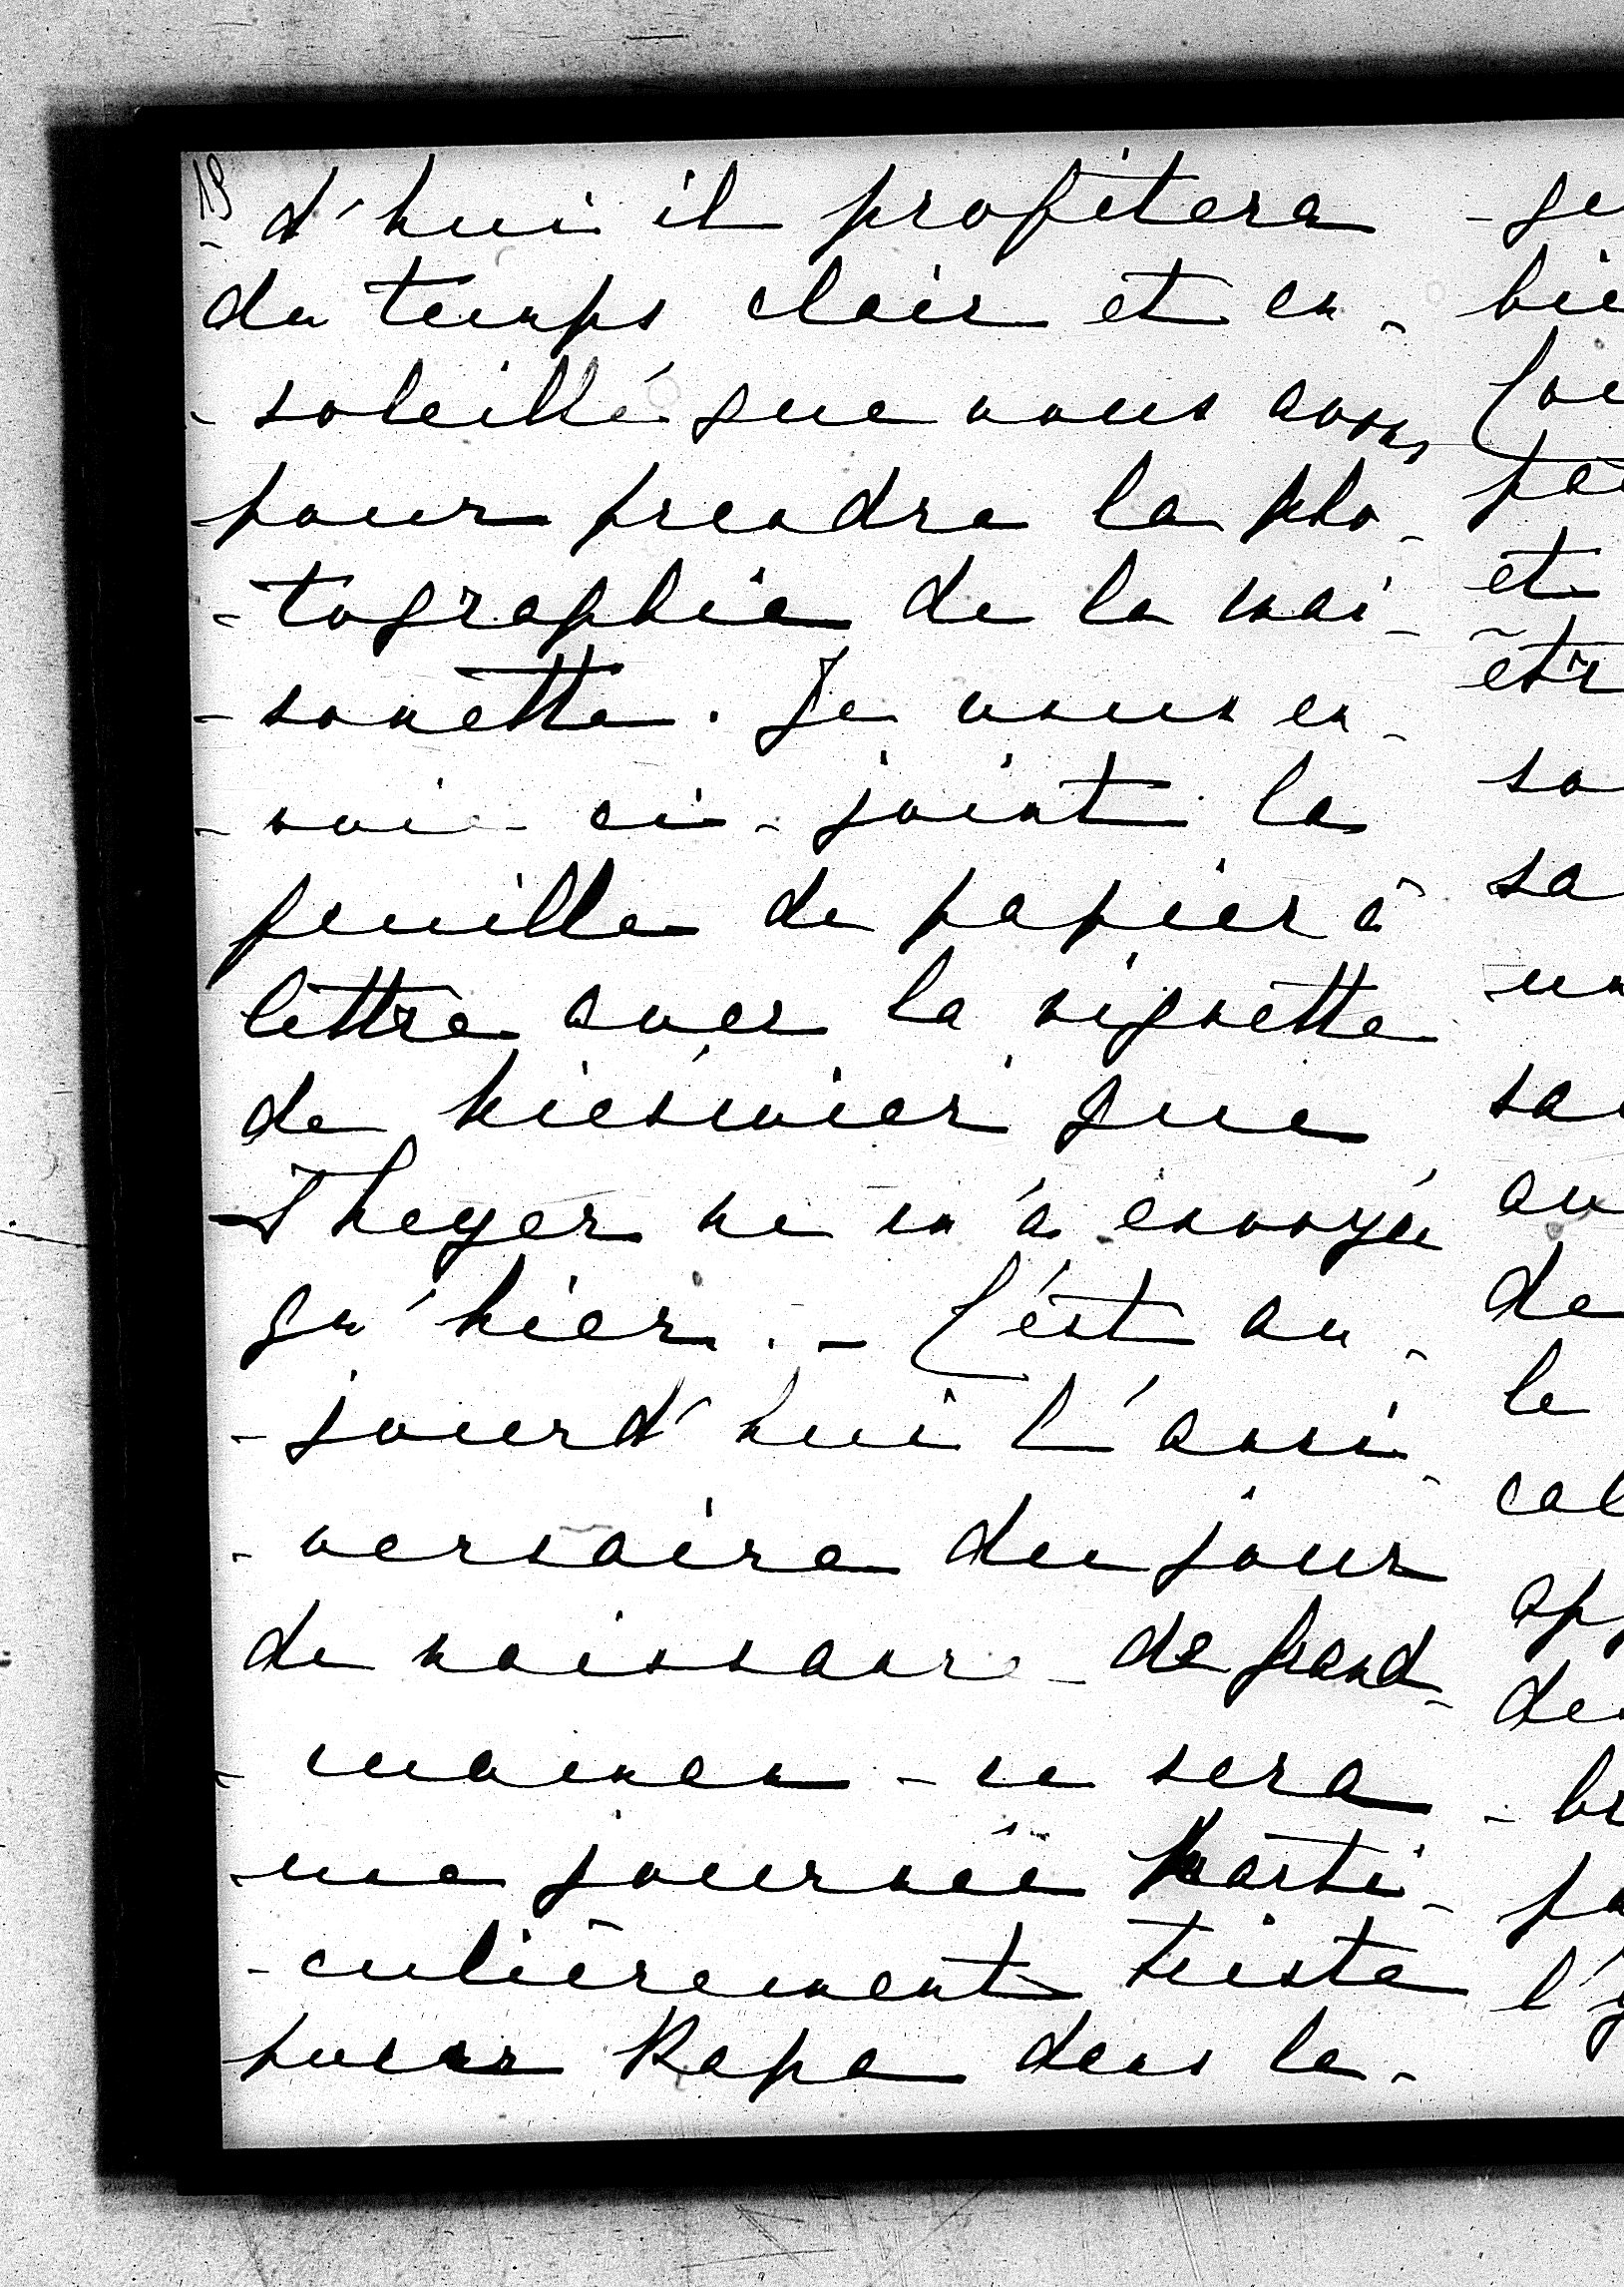 19
- d'hui il profitera
du temps clair et en -
- soleillé que nous avons
pour prendre la pho -
- tographie de la mai -
- sonette. Je vous en -
- voie ci-joint la
feuille de papier à
lettre avec la vignette
de que
Theyer ne m'a envoyée
qu'hier. - C'est au -
- jourd'hui l'anni -
- versaire du jour
de naissance de grand -
- maman - ce sera
une journée parti -
- culièrement triste
pour Papa dans la -
et
sa
de
le